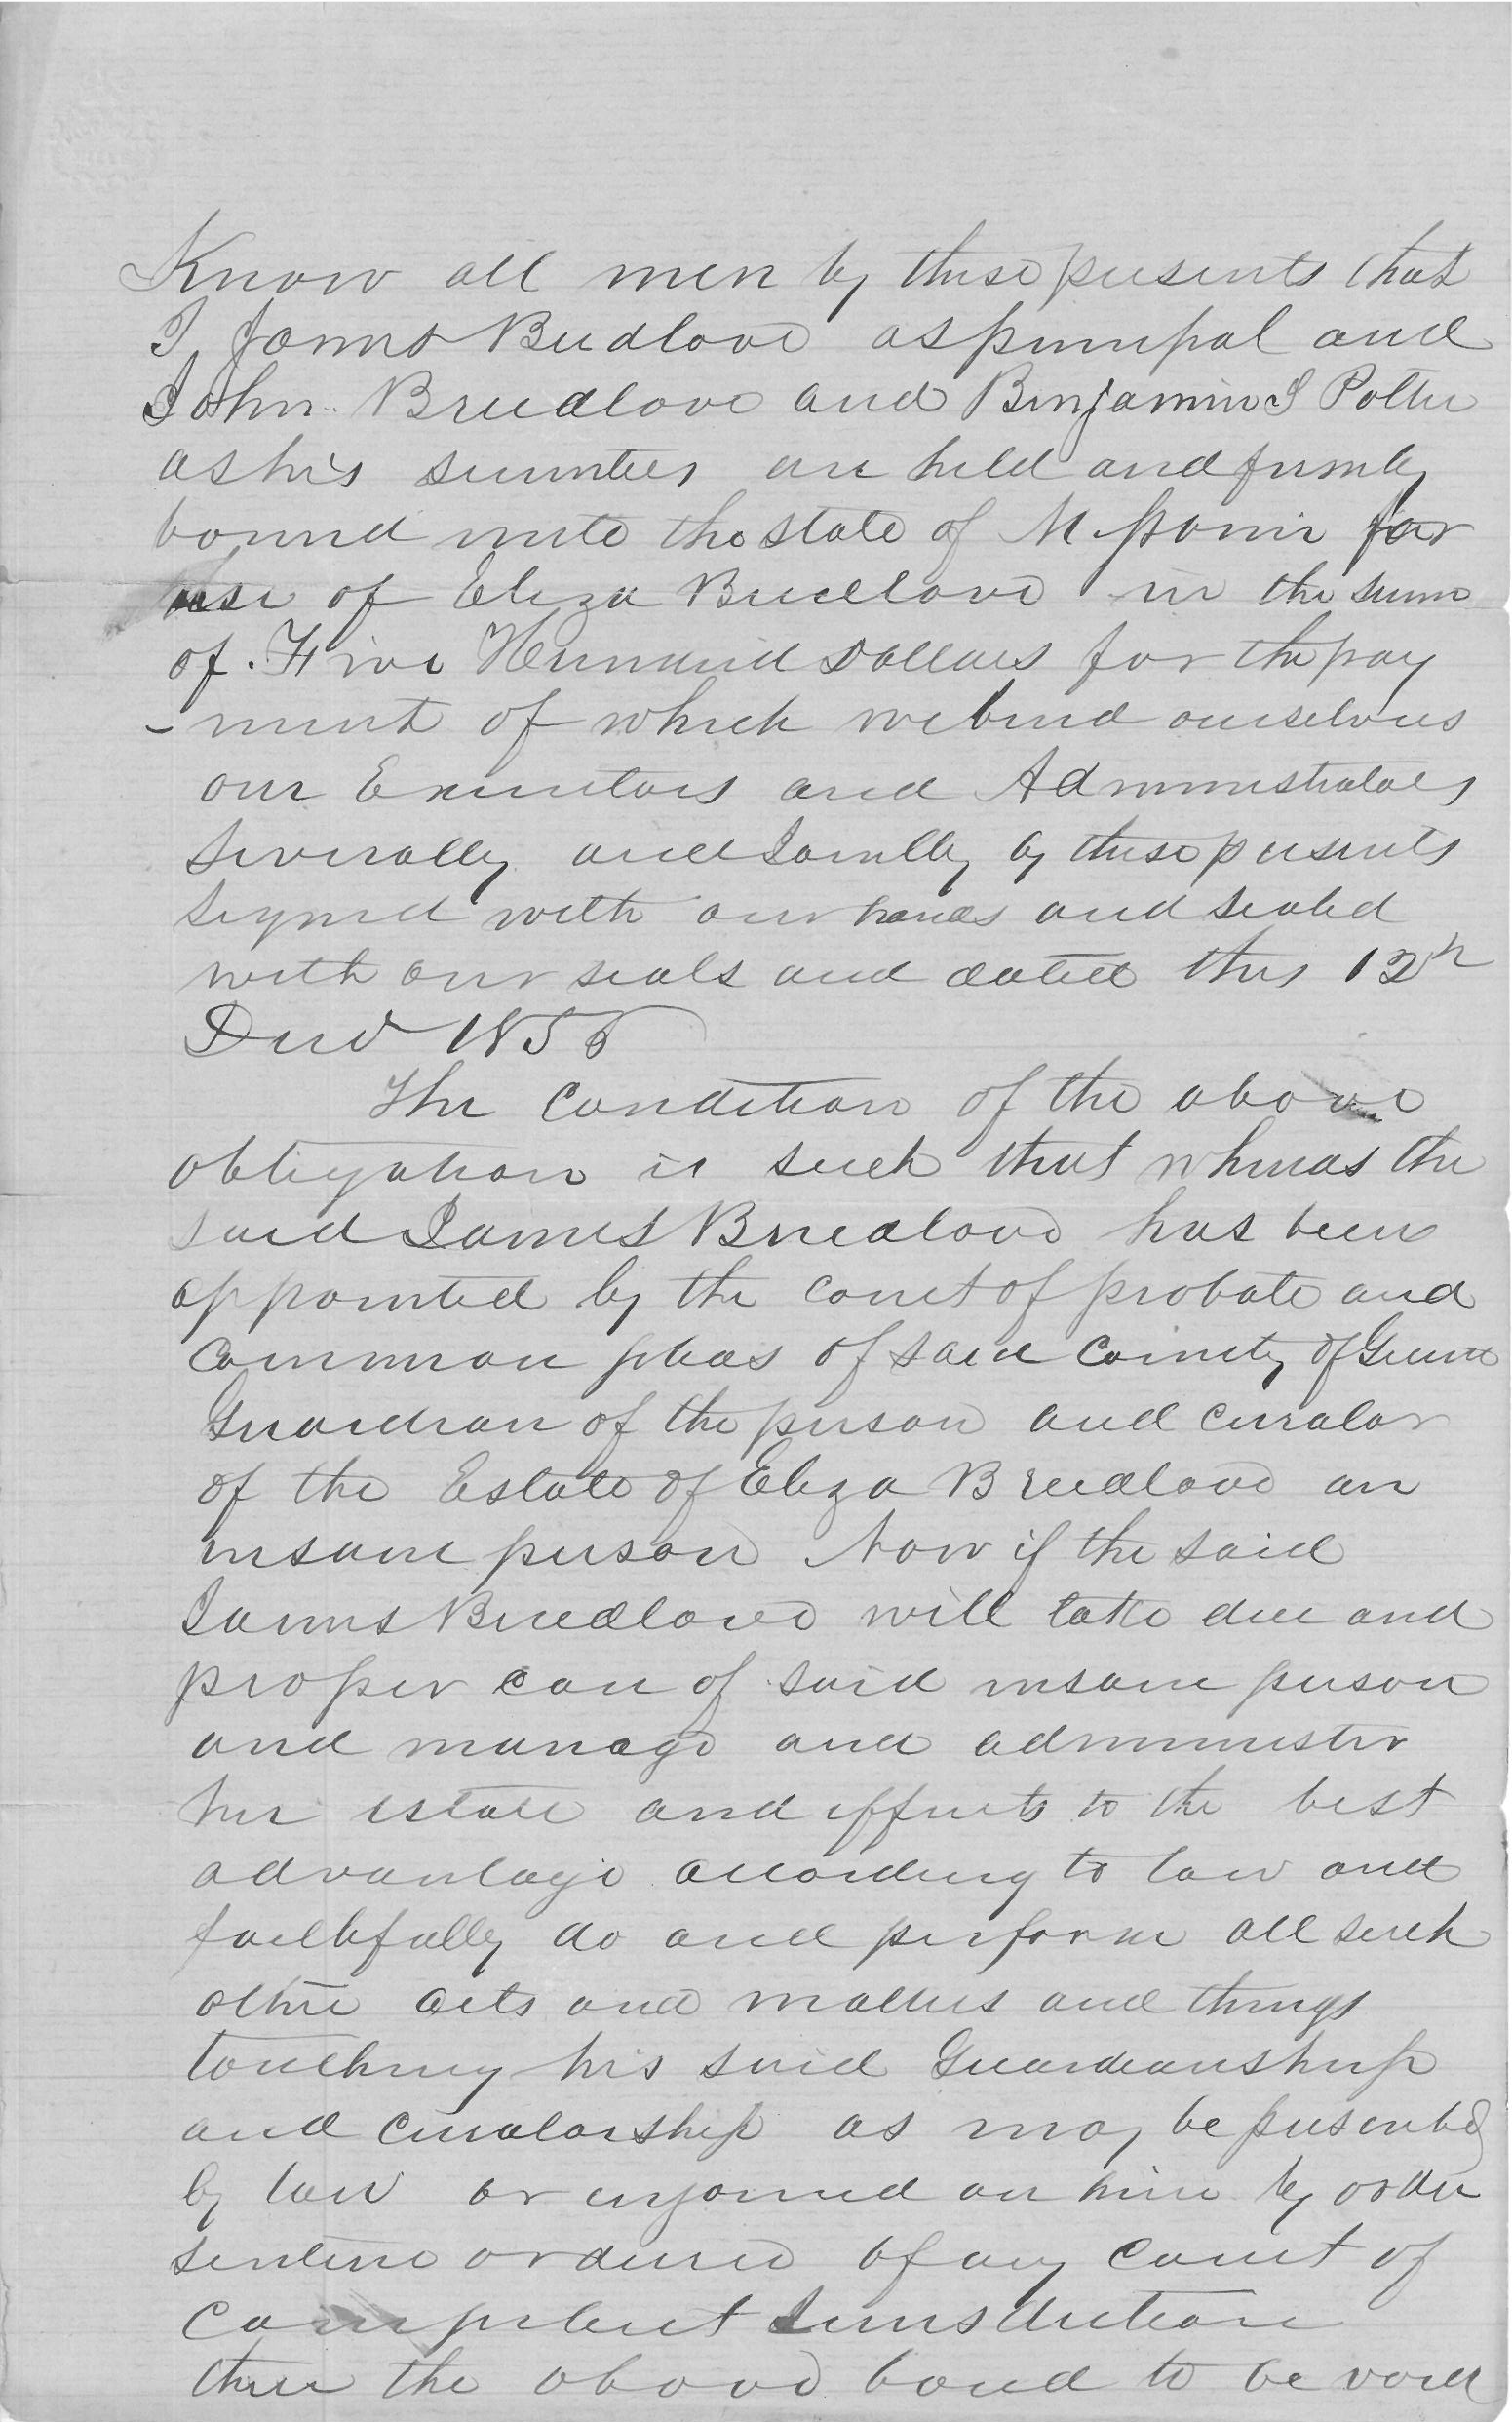 Know all men by these presents that
I James Breedlove as principal and
John Breedlove and Benjamin S Potter
as his surities are held and firmly
bound unto the state of Missouri for
use of Eliza Breedlove in the sum
of Five Hundred Dollars for the pay
-ment of which we bind ourselves
our Executors and Administrators
severally and Jointly by these presents
signed with our hands and sealed
with our seals and dated this
Decr
The condition of the above
obligation is such that whereas the
said James Breedlove has been
appointed by the court of probate and
common pleas of said County of Greene
Guardian of the person and curator
of the Estate of Eliza Breedlove an
insane person Now if the said
James Breedlove will take due and
proper care of said insane person
and manage and administer
her estate and effects to the best
advantage according to law and
faithfully do and perform all such
other acts and matters and things
touching his said Guardianship
and curatorship as may be prescribed
by law or enjoined on him by order
sentence or decree of any court of
competent Jurisdiction
then the above bond to be void